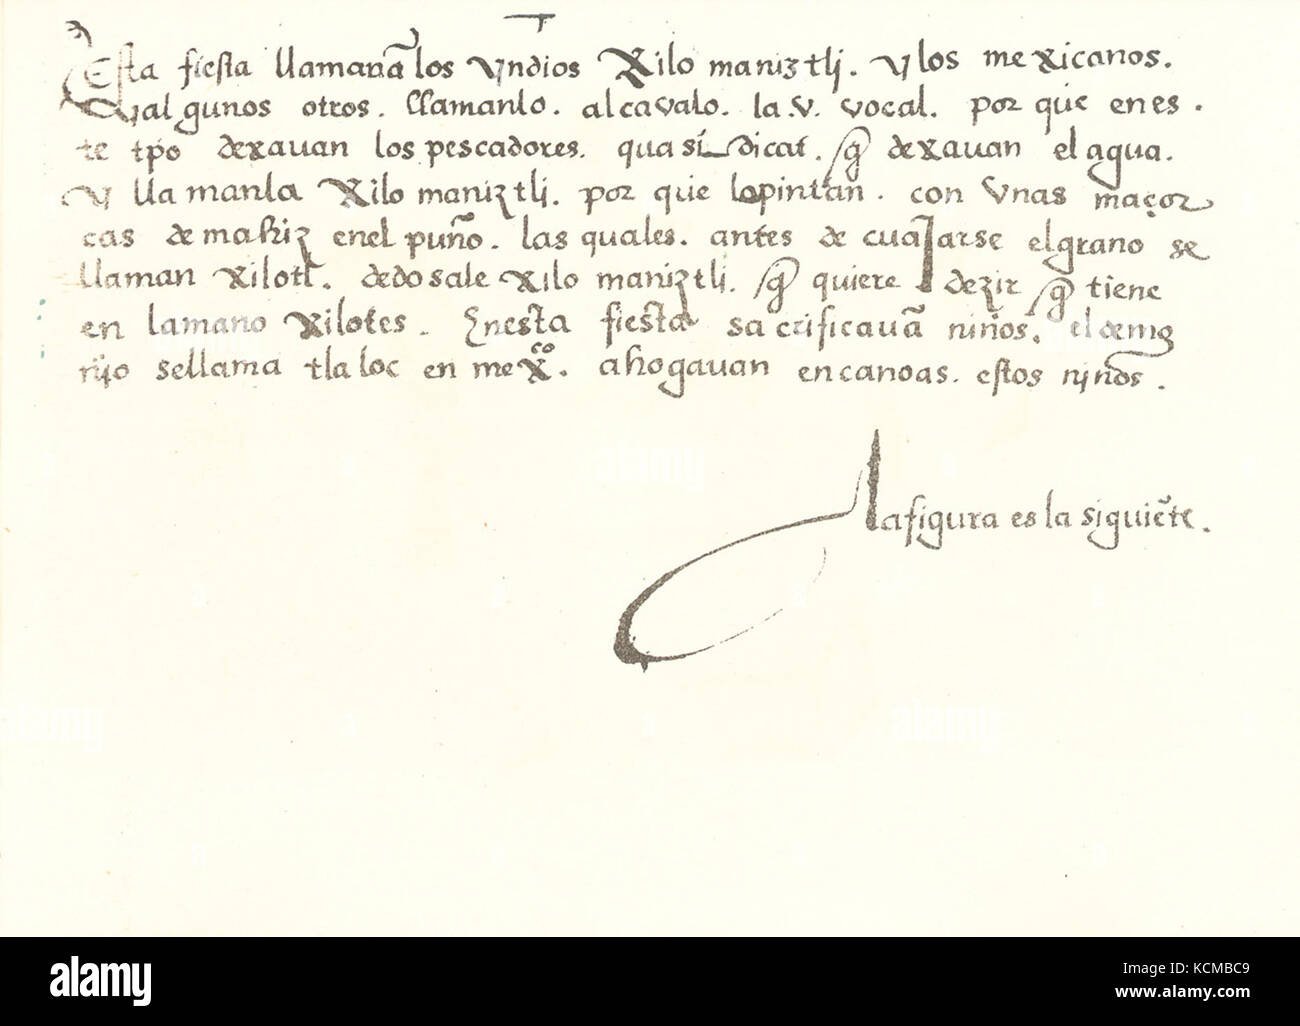 Esta fiesta llamavã los yndios Xilo maniztli. y los mexicanos.
y algunos otros. llamanlo. alcavalo. la .v. vocal. por que en es.
te tpõ dexavan los pescadores. quasi dicat. q̃ dexavan el agua.
y lla manla Xilo maniztli. por que lo pintan. con vnas maçor
cas de mahiz en el puño. las quales. antes de cuajarse el grano se
llaman xilotl. dedo sale xilo maniztli. q̃ quiere dezir q̃ tiene
en la mano xilotes. En esta fiesta sa crificavã niños. el demo
nyo se llama tlaloc en mexco. ahogavan en canoas. estos niños.
La figura es la siguiẽte.
alamy
Image ID: KCMBC9
www.alamy.com